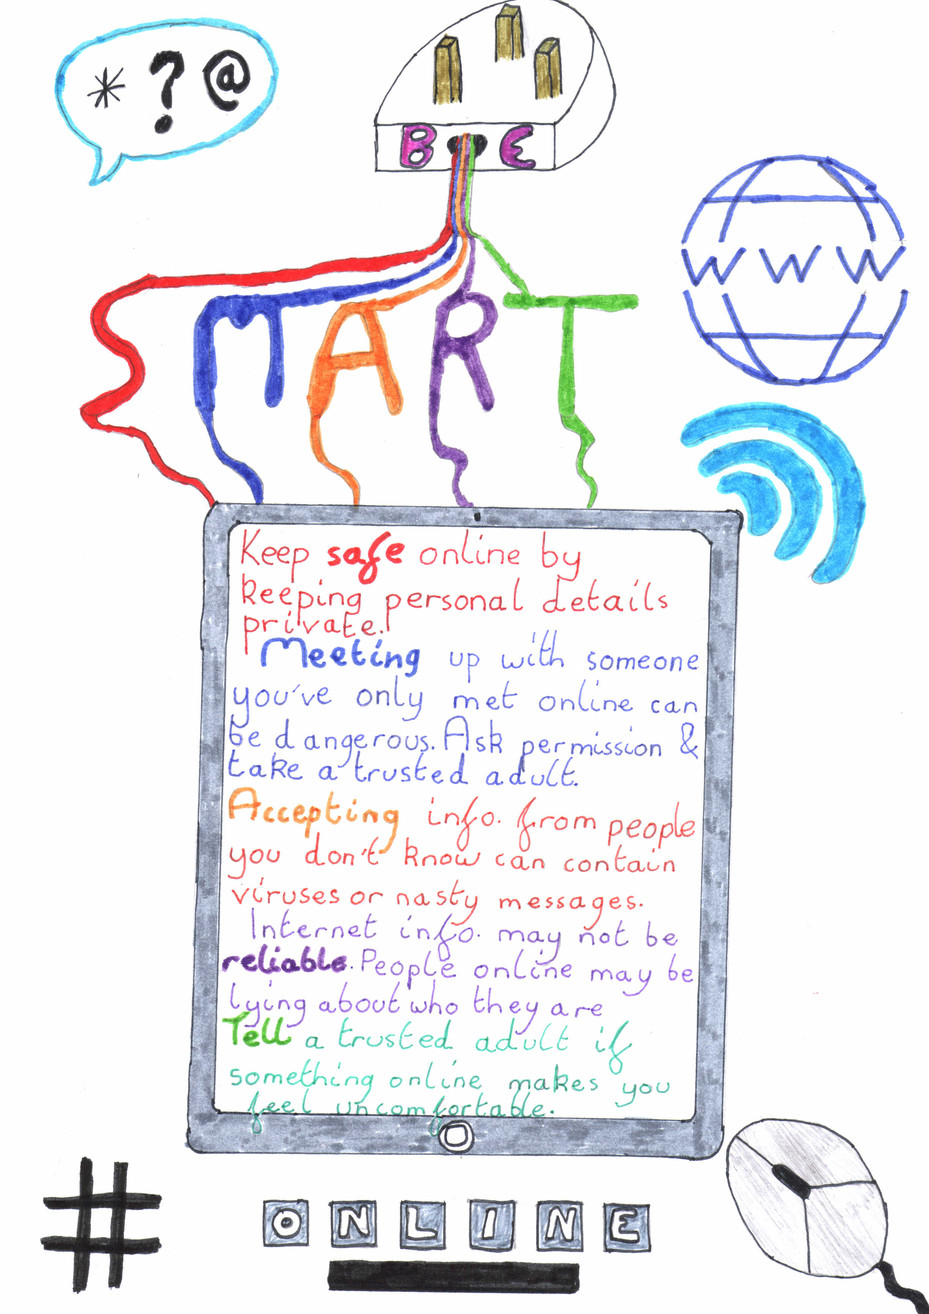 * ? @
B E
SMART
WWW
Keep safe online by
keeping personal details
private.
Meeting up with someone
you've only met online can
be dangerous. Ask permission &
take a trusted adult.
Accepting info. from people
you don't know can contain
viruses or nasty messages.
Internet info. may not be
reliable. People online may be
lying about who they are
Tell a trusted adult if
something online makes you
feel uncomfortable.
#
ONLINE